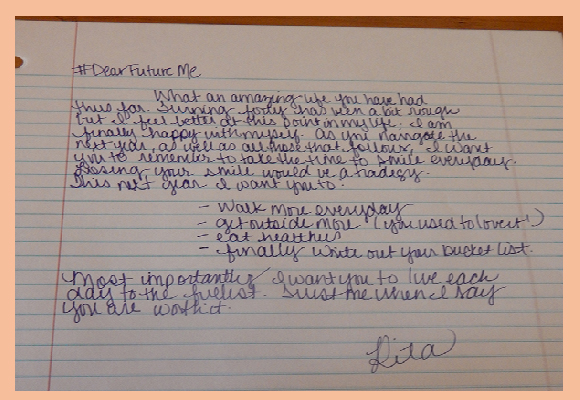 #DearFuture Me
What an amazing life you have had
thus far. Turning forty has been a bit rough
but I feel better at this point in my life. I am
finally happy with myself. As you navigate the
next year, as well as all those that follow, I want
you to remember to take the time to smile everyday.
Losing your smile would be a tradegy.
This next year I want you to:
- Walk more everyday
- get outside more (you used to love it!)
- eat healthier
- finally write out your bucket list.
Most importantly I want you to live each
day to the fullest. Trust me when I say
you are worth it.
Rita